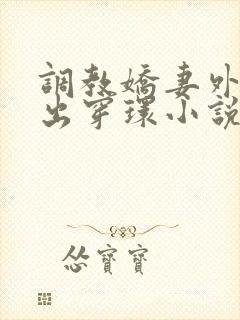 調教嬌妻外
出穿環小說
慫寶寶